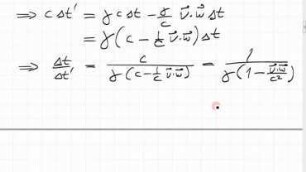 ⇒ cΔt' = γcΔt - γ/c v⃗·w⃗ Δt
= γ(c - 1/c v⃗·w⃗)Δt
⇒ Δt/Δt' = c/(γ(c - 1/c v⃗·w⃗)) = 1/(γ(1 - v⃗·w⃗/c²))